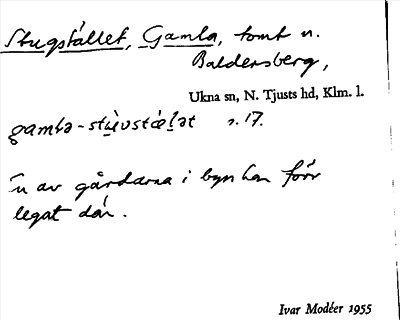 Stugstället, Gamla, tomt u.
Baldersberg,
Ukna sn, N. Tjusts hd, Klm. l.
s. 17.
En av gårdarna i byn har förr
legat där.
Ivar Modéer 1955